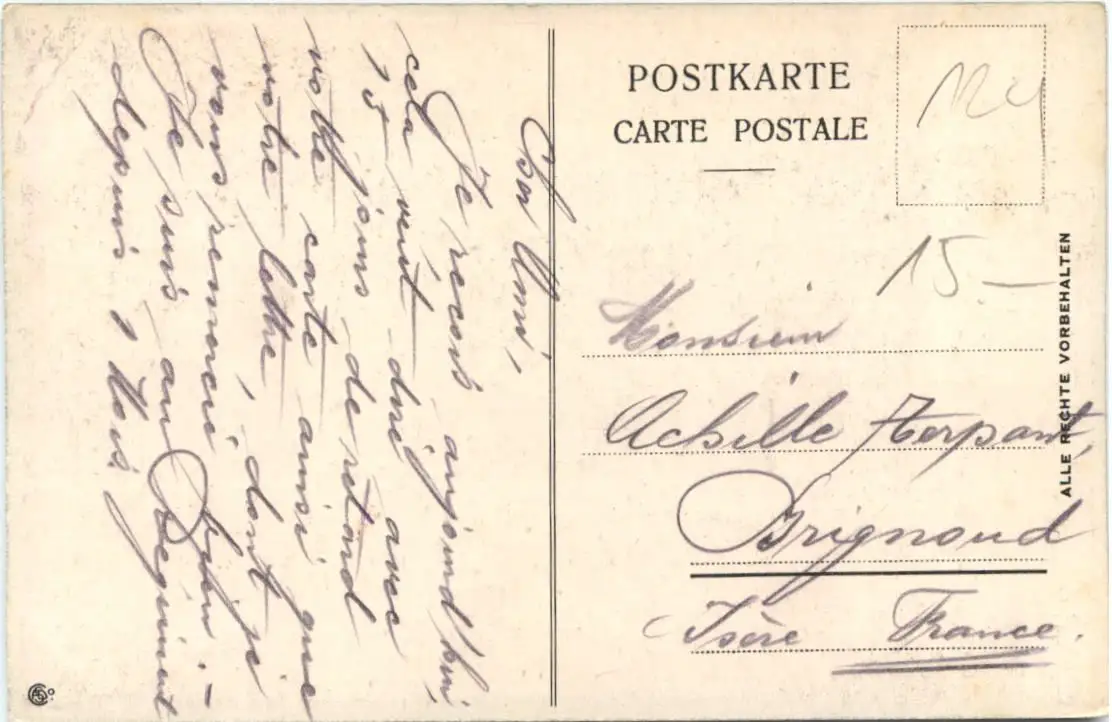 Bon Ami,
Je recois aujourd'hui,
cela veut diré avec
15 jours de retard
votre carte ainsi que
votre lettre, dont je
vous remercie
Je suis au Regiment
depuis 1 Mois
POSTKARTE
CARTE POSTALE
15.-
Monsieur
Achille Terpant,
Brignoud
Isère France.
ALLE RECHTE VORBEHALTEN